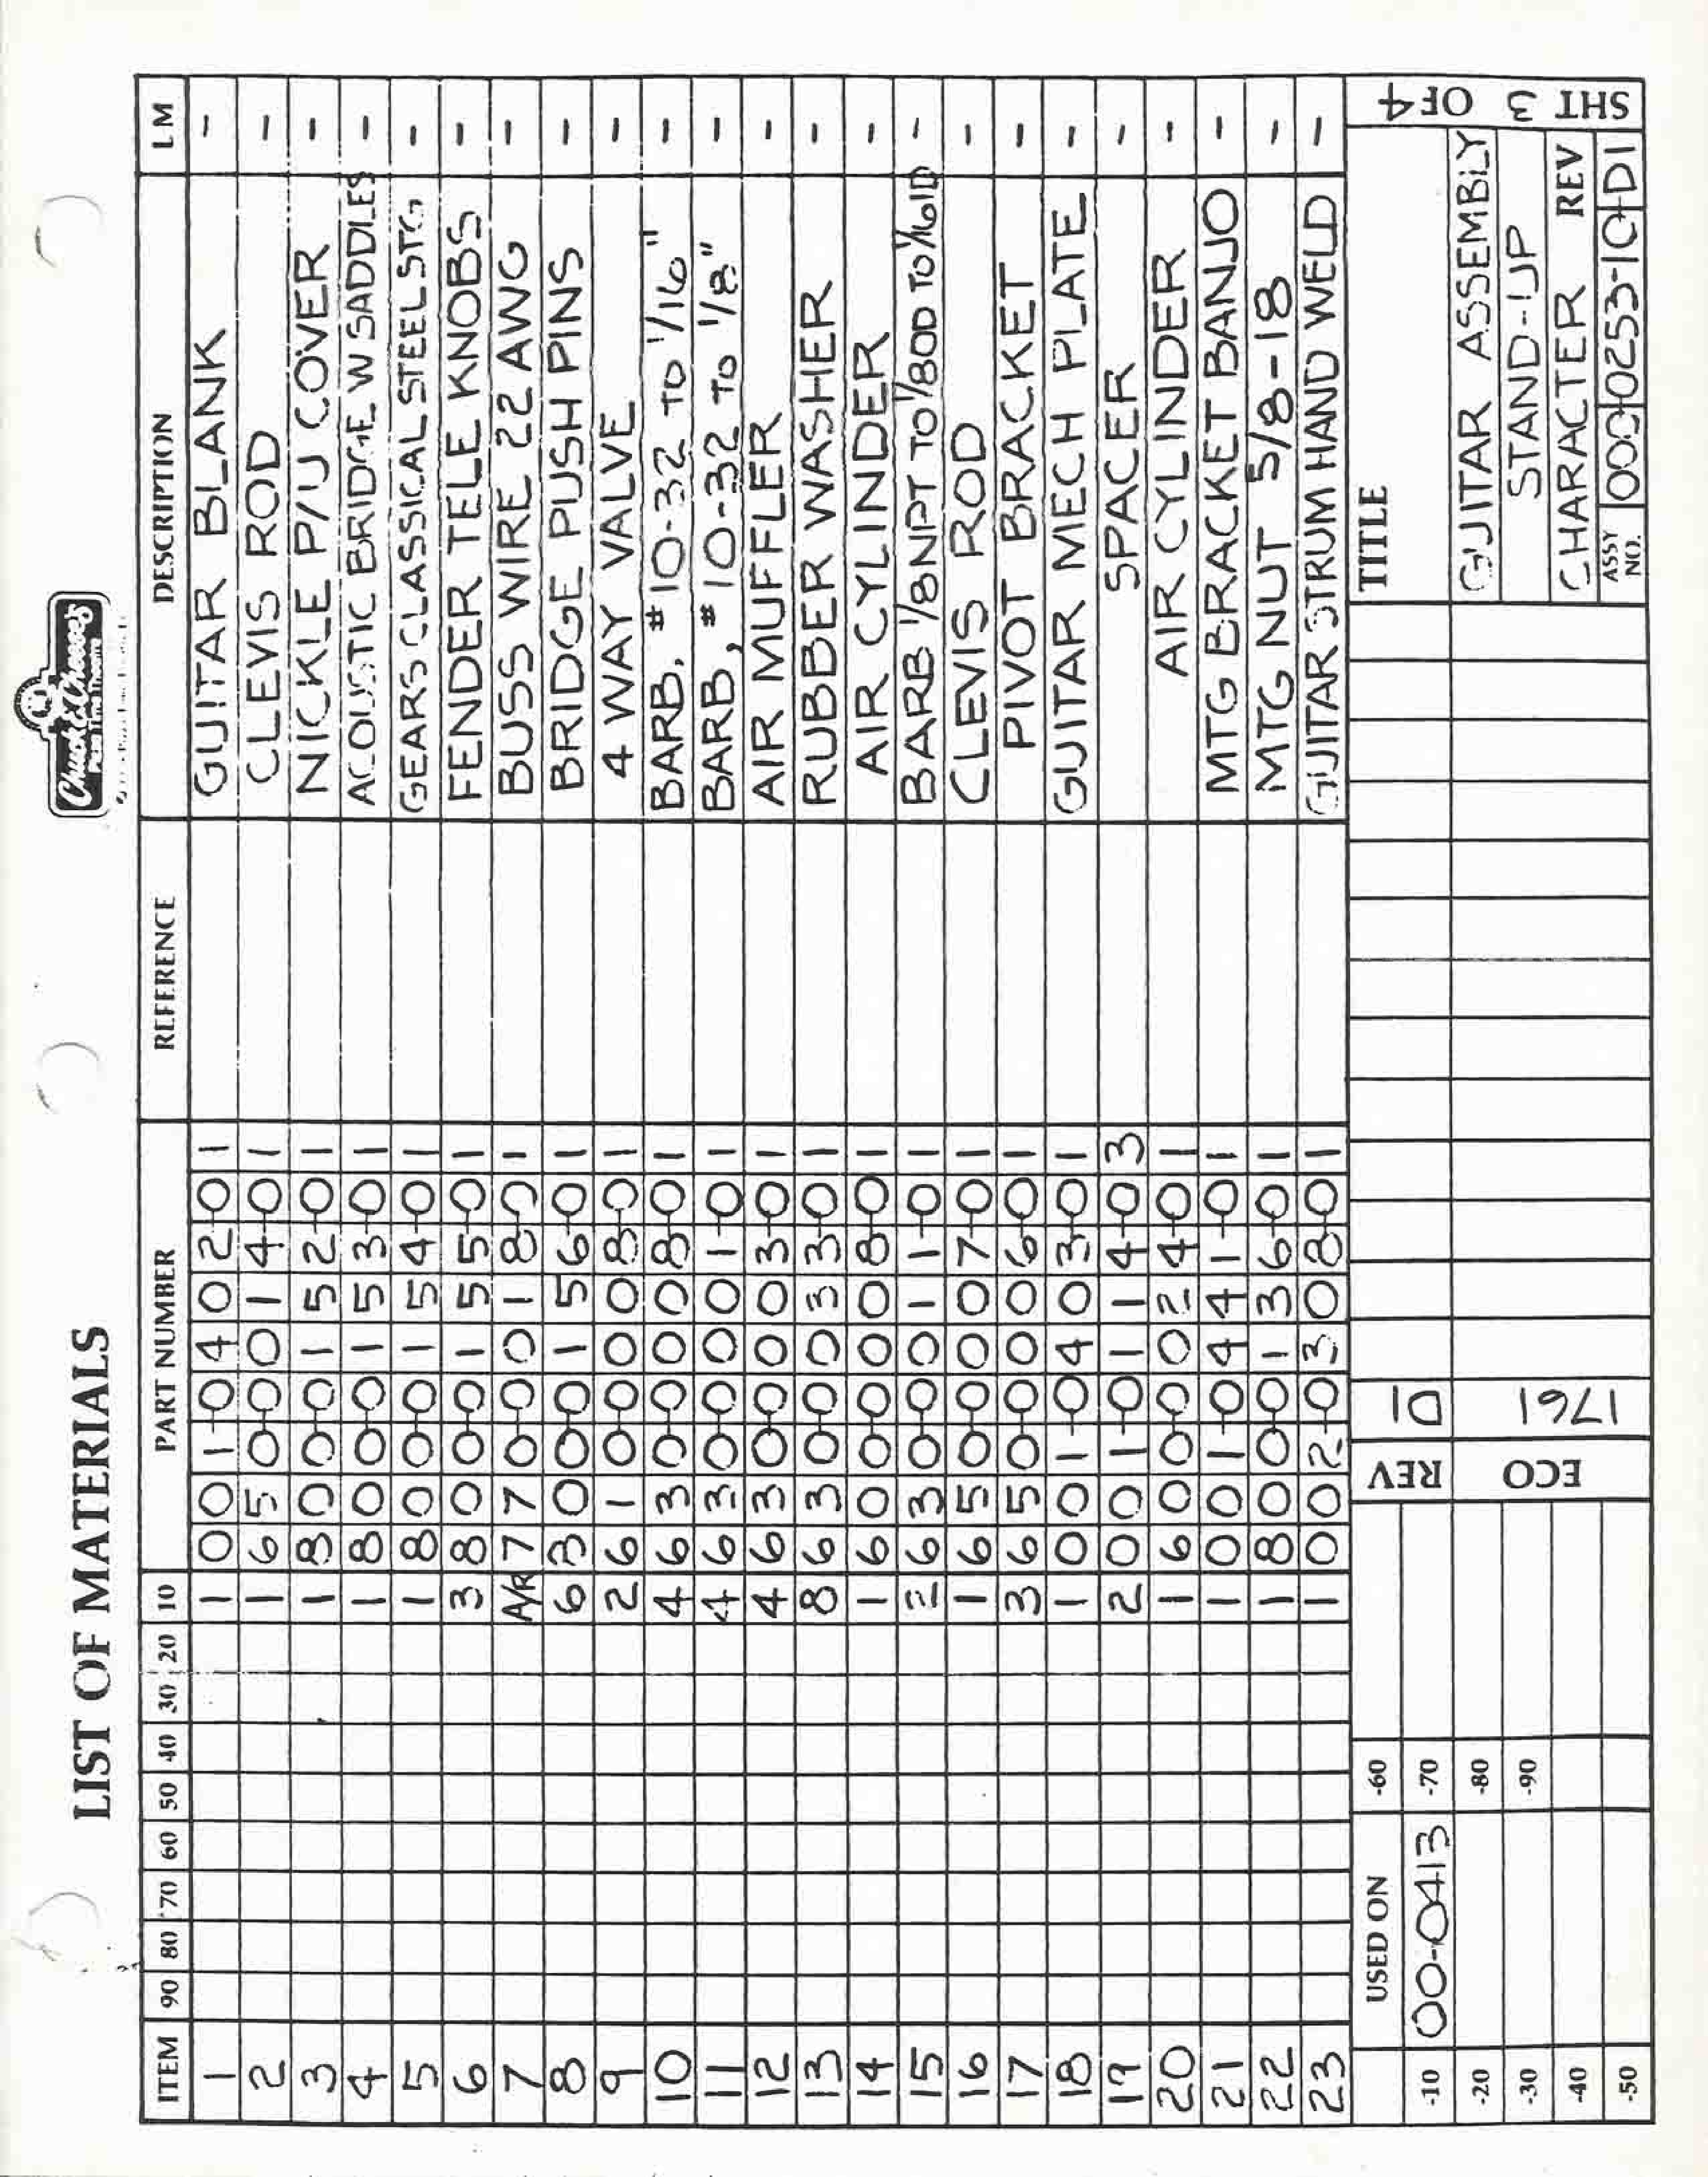 Chuck E. Cheese's
Pizza Time Theatre
LIST OF MATERIALS
ITEM 90 80 70 60 50 40 30 20 10 PART NUMBER REFERENCE DESCRIPTION LM
1 1 001-0402-01 GUITAR BLANK -
2 1 650-0014-01 CLEVIS ROD -
3 1 800-0152-01 NICKLE P/U COVER -
4 1 800-0153-01 ACOUSTIC BRIDGE W SADDLES -
5 1 800-0154-01 GEARS CLASSICAL STEEL STG -
6 3 800-0155-01 FENDER TELE KNOBS -
7 A/R 770-0018-01 BUSS WIRE 22 AWG -
8 6 300-0156-01 BRIDGE PUSH PINS -
9 2 610-0008-01 4 WAY VALVE -
10 4 630-0008-01 BARB, #10-32 TO 1/16" -
11 4 630-0001-01 BARB, #10-32 TO 1/8" -
12 4 630-0003-01 AIR MUFFLER -
13 8 630-0033-01 RUBBER WASHER -
14 1 600-0008-01 AIR CYLINDER -
15 2 630-0011-01 BARB 1/8NPT TO 1/8OD TO 1/16ID -
16 1 650-0007-01 CLEVIS ROD -
17 3 650-0006-01 PIVOT BRACKET -
18 1 001-0403-01 GUITAR MECH PLATE -
19 2 001-0114-03 SPACER -
20 1 600-0024-01 AIR CYLINDER -
21 1 001-0441-01 MTG BRACKET BANJO -
22 1 800-0136-01 MTG NUT 5/8-18 -
23 1 002-0308-01 GUITAR STRUM HAND WELD -
USED ON -60 REV D1 TITLE SHT 3 OF 4
-10 00-0413 -70
-20 -80 ECO 1761 GUITAR ASSEMBLY
-30 -90 STAND-UP
-40 CHARACTER REV
-50 ASSY NO. 000-0253-10 D1